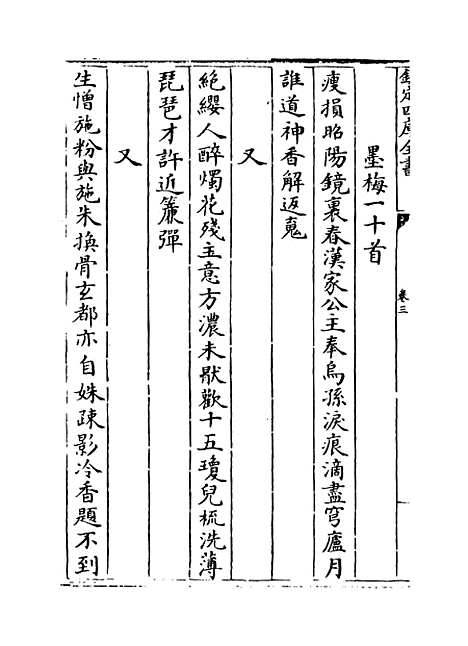 欽定四庫全書
卷三
墨梅一十首
瘦損昭陽鏡裏春漢家公主奉烏孫淚痕滴盡穹廬月
誰道神香解返䰟
又
絶纓人醉燭花殘主意方濃未厭歡十五瓊兒梳洗薄
琵琶才許近簾彈
又
生憎施粉與施朱換骨玄都亦自姝疎影冷香題不到